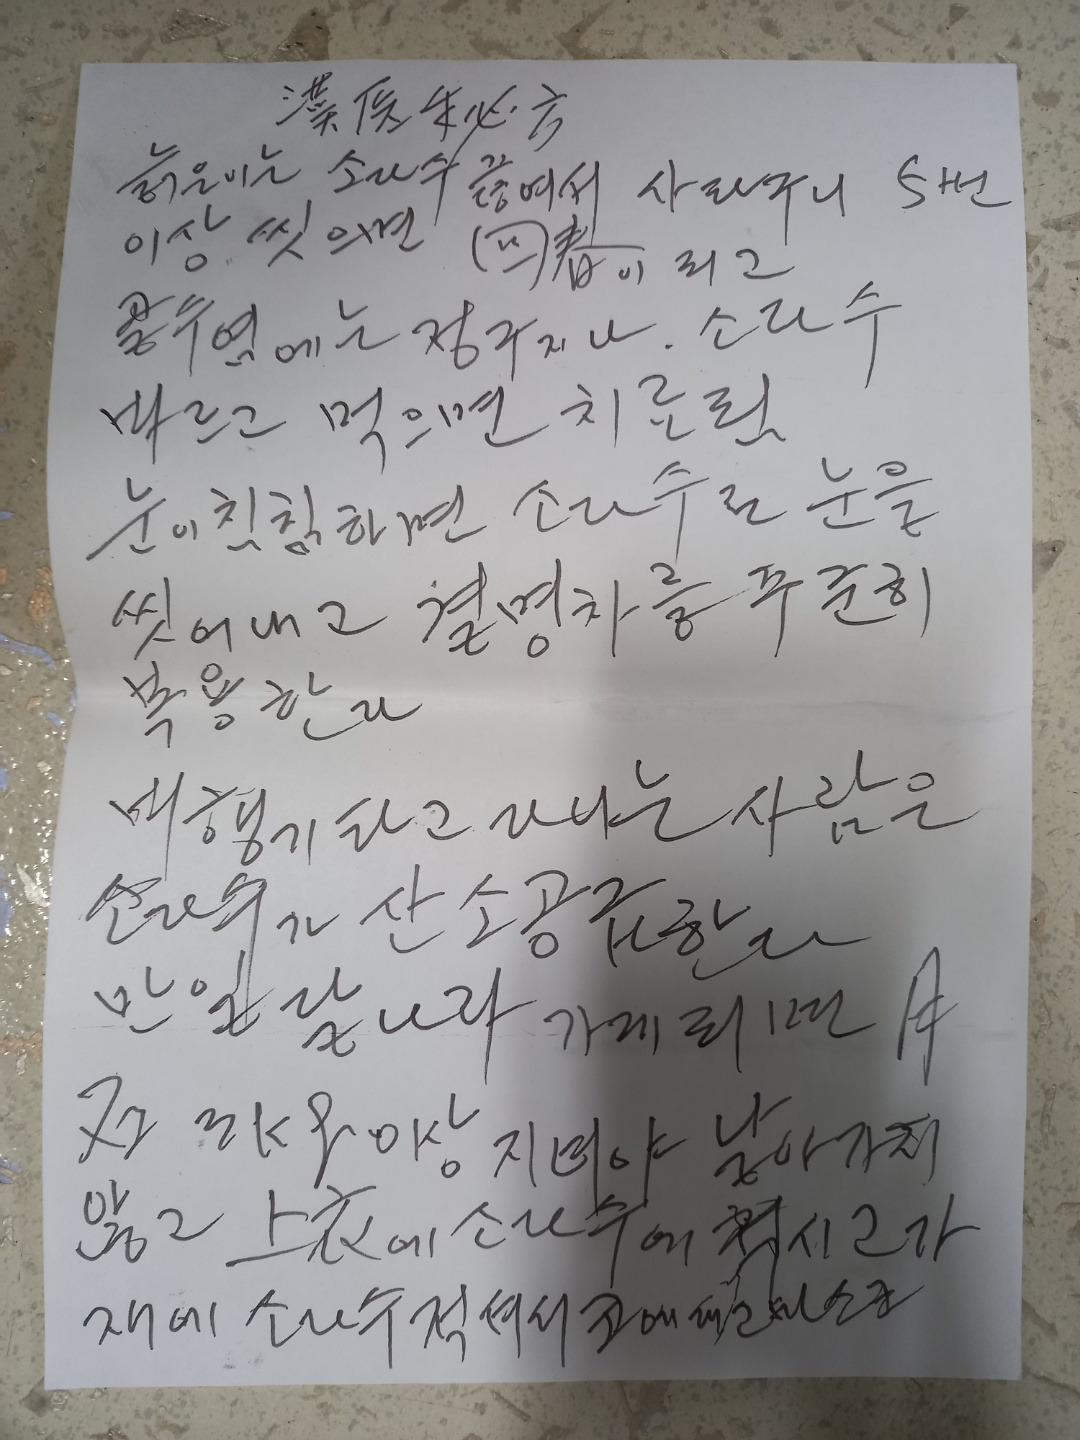 漢医朱必方
늙은이는 소라수 끓여서 사타구니 5번
이상 씻으면 (回)春이 되고
중수염에는 정구지나. 소라수
바르고 먹으면 치료됨
눈이침침하면 소라수로 눈을
씻어내고 결명차를 꾸준히
복용한다
비행기타고 다니는 사람은
소라수가 산소공급한다
만일 달나라 가게되면 月
이상 지녀야 날아가지
않고 上衣에 소라수에 적시고 가
재에 소라수적셔서 코에대고